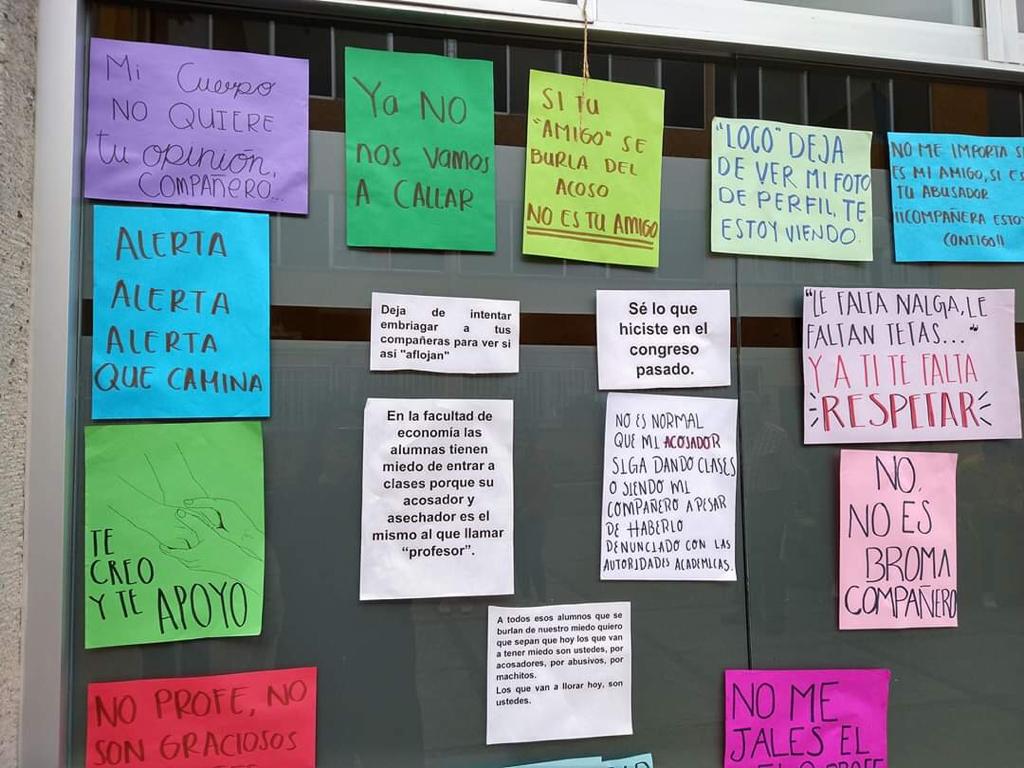 Mi Cuerpo
NO QUIERE
tu opinión,
COMPAÑERO...
Ya NO
nos vamos
A CALLAR
SI TU
"AMIGO" SE
BURLA DEL
ACOSO
NO ES TU AMIGO
"LOCO" DEJA
DE VER MI FOTO
DE PERFIL, TE
ESTOY VIENDO.
NO ME IMPORTA SI
ES MI AMIGO, SI ES
TU ABUSADOR
¡¡COMPAÑERA ESTOY
CONTIGO!!
ALERTA
ALERTA
ALERTA
QUE CAMINA
Deja de intentar
embriagar a tus
compañeras para ver si
así "aflojan"
Sé lo que
hiciste en el
congreso
pasado.
"LE FALTA NALGA, LE
FALTAN TETAS..."
Y A TI TE FALTA
RESPETAR
En la facultad de
economía las
alumnas tienen
miedo de entrar a
clases porque su
acosador y
asechador es el
mismo al que llamar
“profesor”.
NO ES NORMAL
QUE MI ACOSADOR
SIGA DANDO CLASES
O SIENDO MI
COMPAÑERO A PESAR
DE HABERLO
DENUNCIADO CON LAS
AUTORIDADES ACADEMICAS.
TE
CREO
Y TE APOYO
NO,
NO ES
BROMA
COMPAÑERO
A todos esos alumnos que se
burlan de nuestro miedo quiero
que sepan que hoy los que van
a tener miedo son ustedes, por
acosadores, por abusivos, por
machitos.
Los que van a llorar hoy, son
ustedes.
NO PROFE, NO
SON GRACIOSOS
NO ME
JALES EL